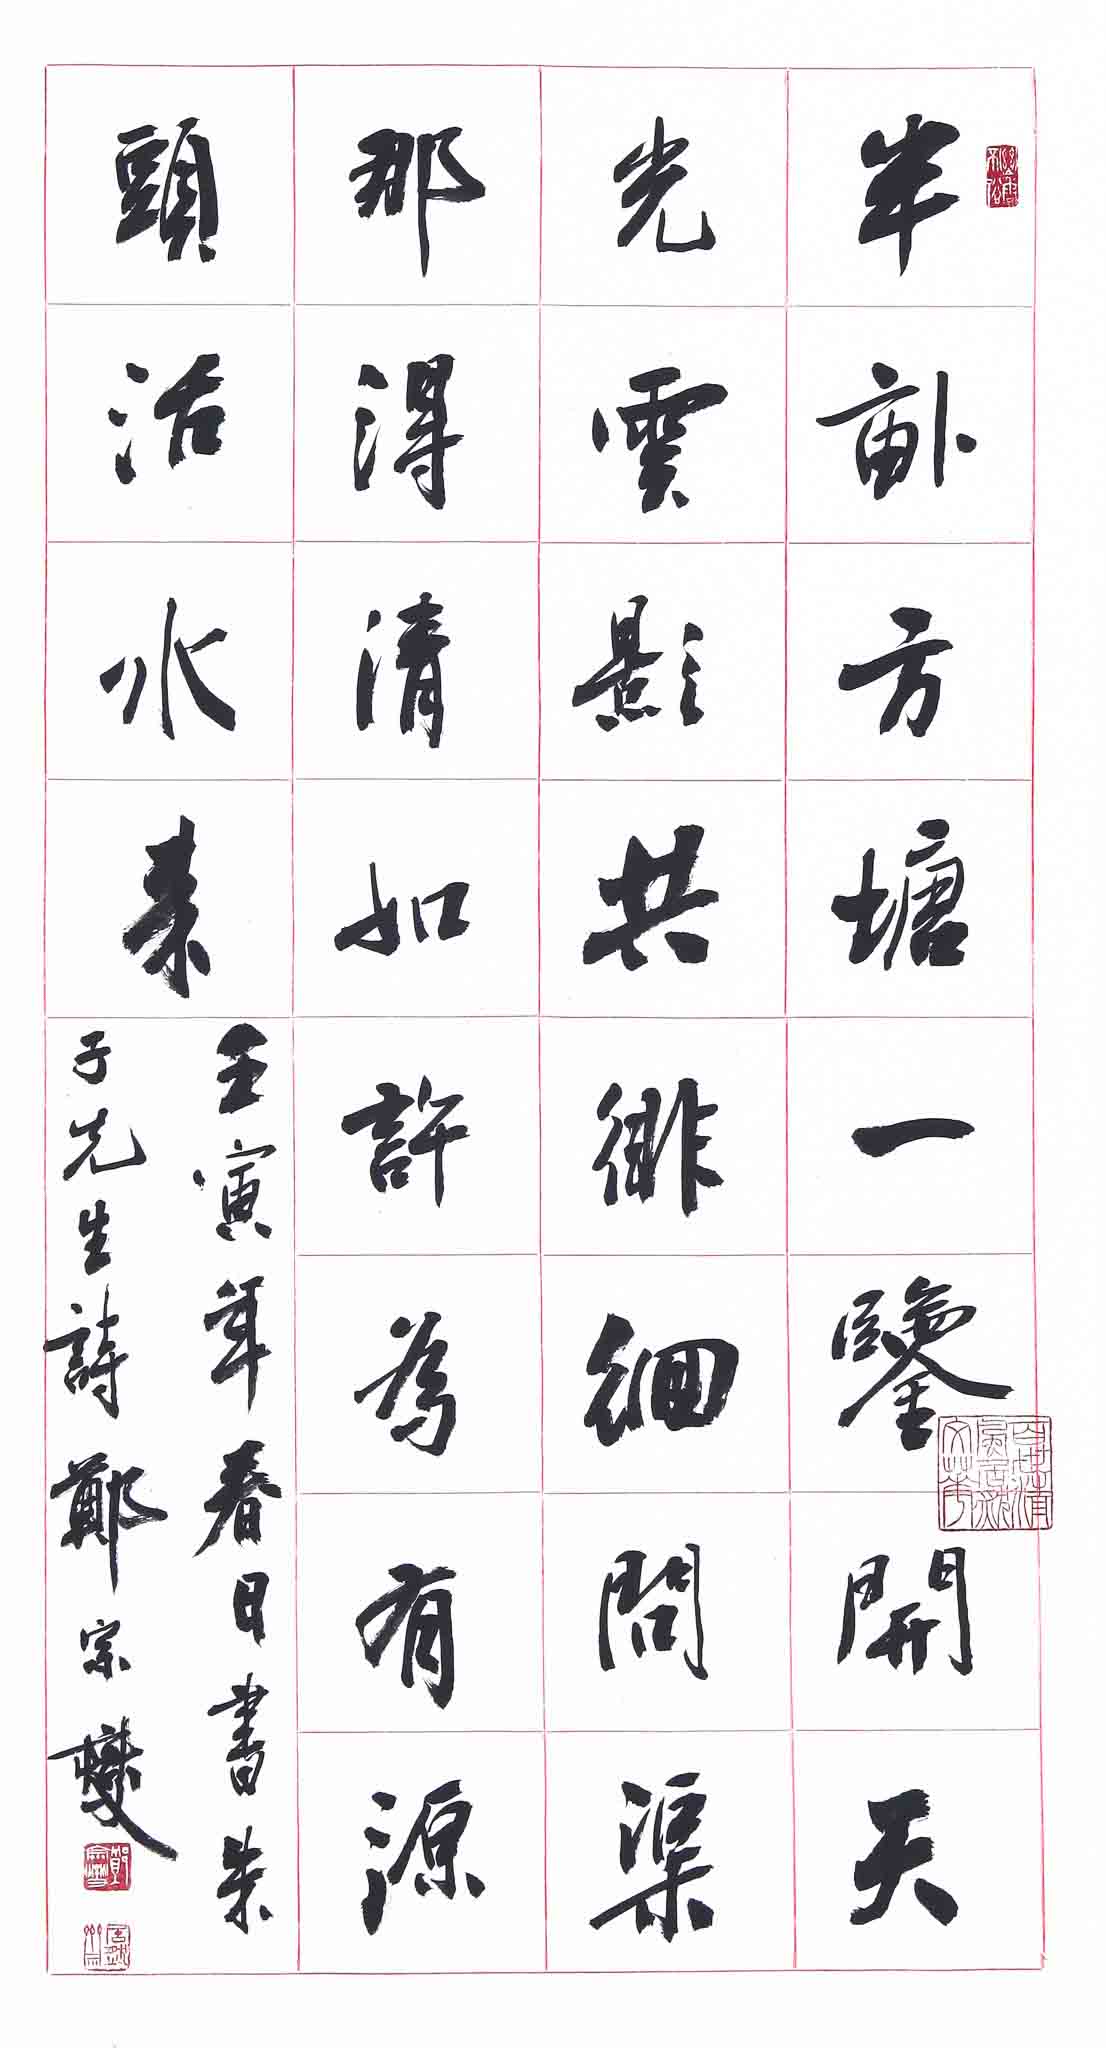 半畝方塘一鑒開天
光雲影共徘徊問渠
那得清如許為有源
頭活水來
壬寅年春日書朱
子先生詩鄭宗燮